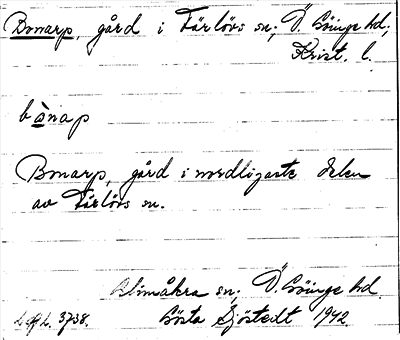 Bonarp, gård i Färlövs sn; Ö. Göinge hd,
Krist. l.
bònap
Bonarp, gård i nordligaste delen
av Färlövs sn.
Glimåkra sn; Ö. Göinge hd.
3738. Gösta Sjöstedt 1942.